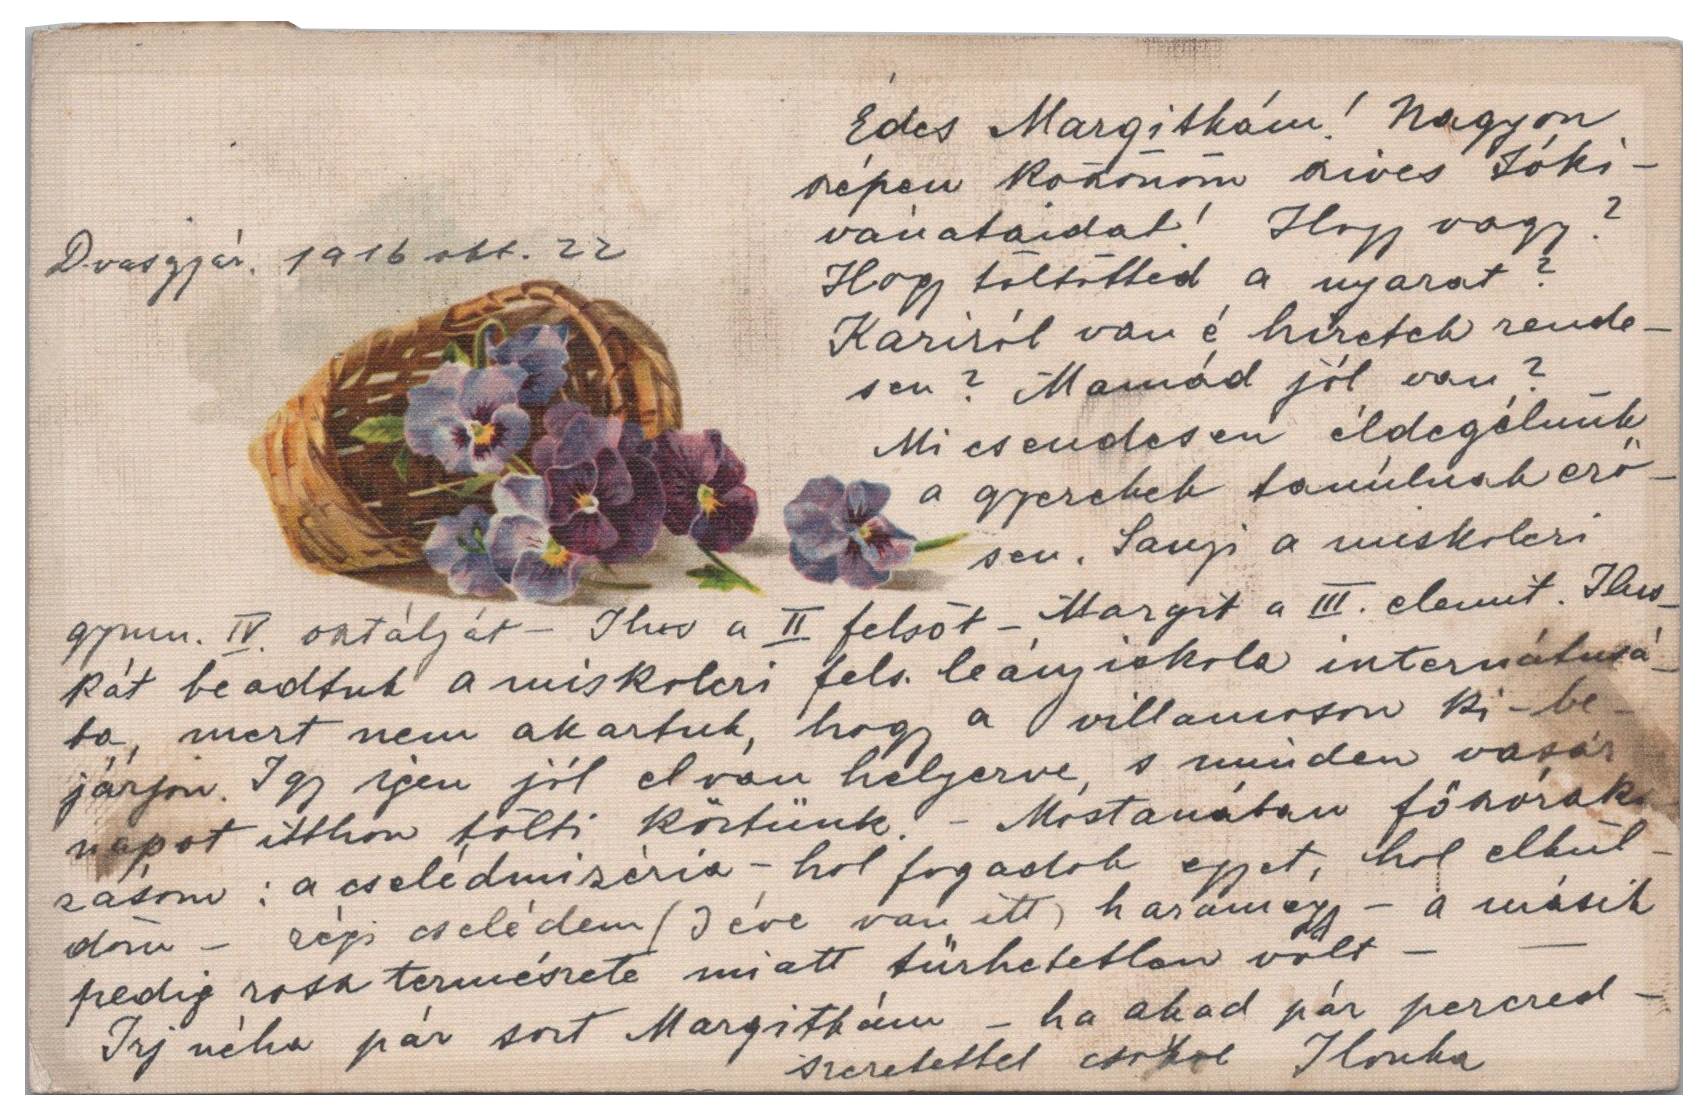 Édes Margitkám! Nagyon
szépen köszönöm szives jóki-
vánataidat! Hogy vagy?
Hogy töltötted a nyarat?
Dvasgyár. 1916 okt. 22
Kariról van é hiretek rende-
sen? Mamád jól van?
Mi csendesen éldegélünk
a gyerekek tanúlnak erő-
sen. Sanyi a miskolczi
gymn. IV. osztályát – Ilus a II felsőt – Margit a III. elemit. Ilus-
kát beadtuk a miskolczi fels. leányiskola internátusá-
ba, mert nem akartuk, hogy a villamoson ki-be-
járjon. Igy igen jól el van helyezve, s minden vasár
napot itthon tölti köztünk. – Mostanában főszórako
zásom: a cselédmizéria – hol fogadok egyet, hol elkül-
döm – régi cselédem (3 éve van itt) hazamegy – a másik
pedig rosz természete miatt türhetetlen volt –
Irj néha pár sort Margitkám – ha akad pár perczed –
szeretettel csókol Ilonka